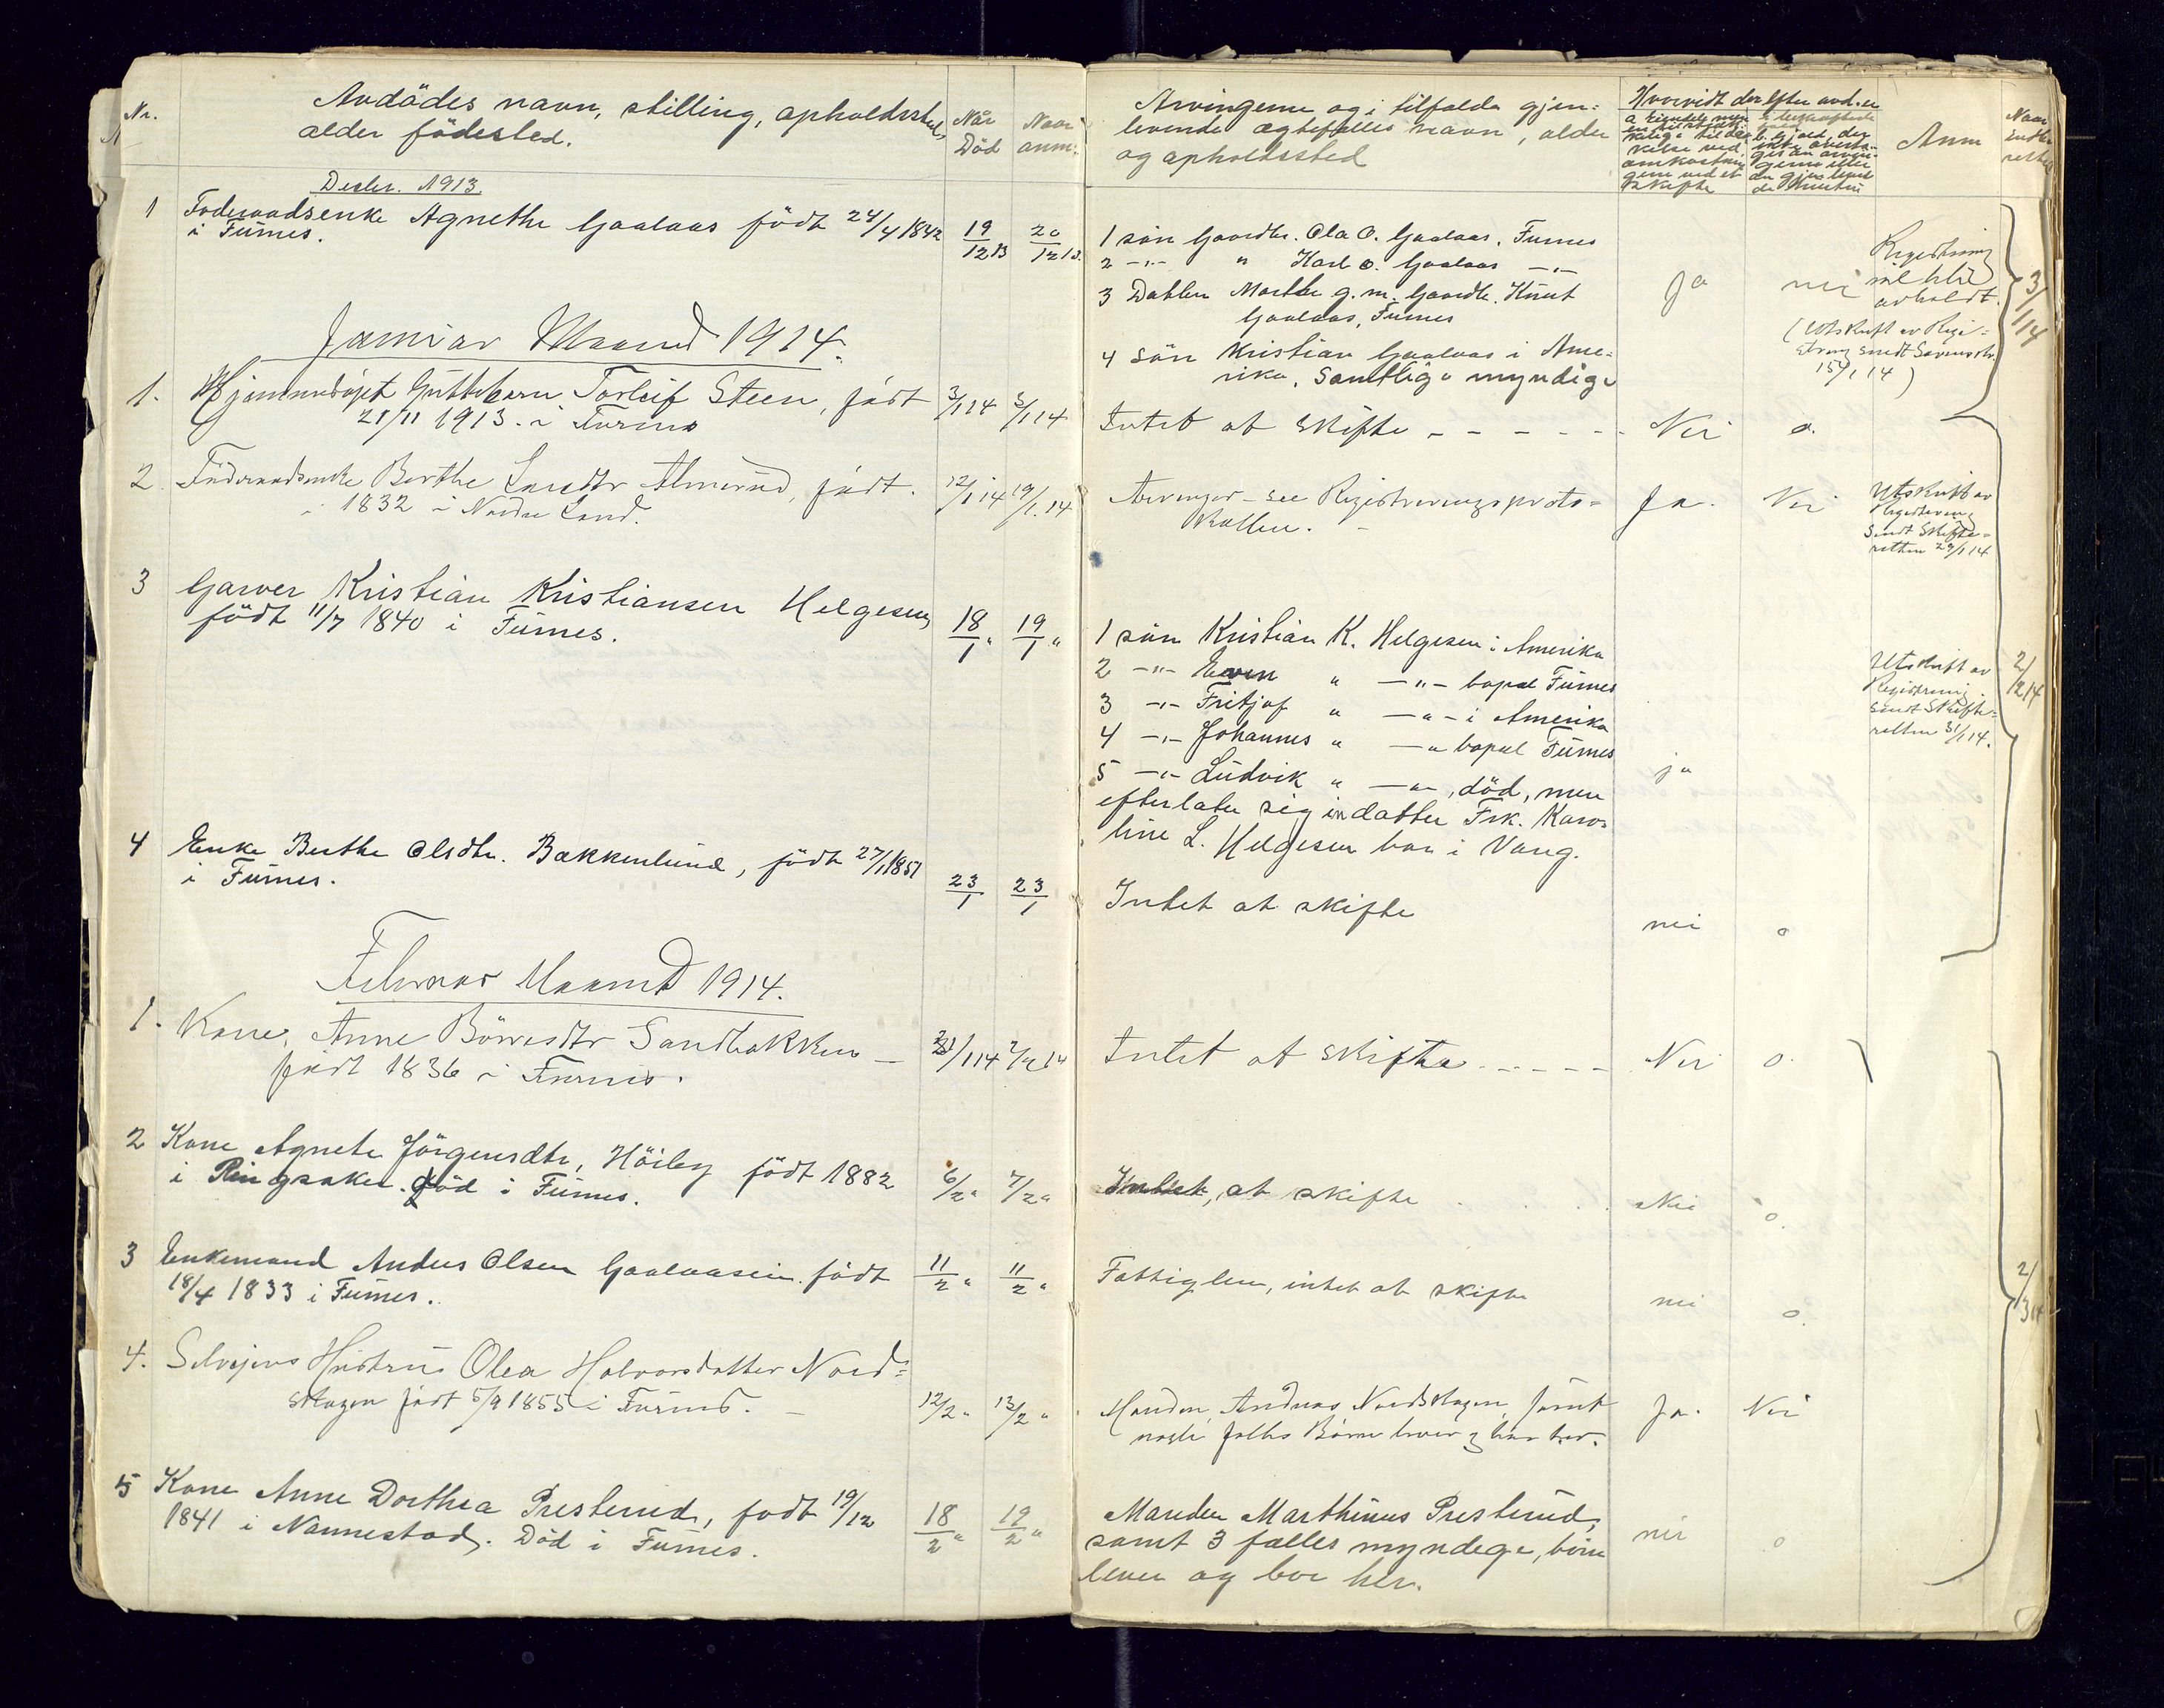 Nr.
Avdödes navn, stilling, opholdssted,
alder födested.
Når
Död
Naar
anm.
Desbr. 1913.
1 Foderaadsenke Agnethe Gaalaas födt 24/4 1842
i Furnes.
19/12 13
20/12 13
Januar Maaned 1914.
1. Hjemmedøpt Guttebarn Torleif Steen, født
21/11 1913. i Furnes
3/1 14
5/1 14
2 Föderaadsenke Berthe Larsdtr Almerud, født.
1832 i Nordre Land.
12/1 14
19/1 14
3 Garver Kristian Kristiansen Helgesen,
födt 11/7 1840 i Furnes.
18/1 "
19/1 "
4 Enke Berthe Olsdtr. Bakkenlund, födt 27/1 1851
i Furnes.
23/1
23/1
Februar Maaned 1914.
1. Kone, Anne Börresdtr Sandbakken –
født 1836 i Furnes.
31/1 14
2/2 14
2 Kone Agnete Jörgensdtr, Höiby födt 1882
i Ringsaker. Död i Furnes.
6/2 "
7/2 "
3 Enkemand Anders Olsen Gaalaaseie. födt
18/4 1833 i Furnes.
11/2 "
11/2 "
4. Selvejers Hustru Olea Halvorsdatter Nord=
skogen født 5/9 1855 i Furnes. –
12/2 "
13/2 "
5 Kone Anne Dorthea Presterud, födt 19/12
1841 i Nannestad. Död i Furnes.
18/2 "
19/2 "
Arvingerne og i tilfælde gjen=
levende ægtefælles navn, alder
og opholdssted
Hvorvidt der efter avd. er
Anm
Naar
1 sön Gaardbr. Ola O. Gaalaas, Furnes
2 –"– " Karl O. Gaalaas –"–
3 Datter Marthe g. m. Gaardb. Knut
Gaalaas, Furnes
4 Sön Kristian Gaalaas i Ame-
rika. Samtlige myndige
Ja
nei
Registrering
vil bli
avholdt.
(Utskrift av Regi=
strering sendt Sorenskr.
15/1 14)
3/1 14
Intet at skifte – – – – – –
Nei
o.
Arvinger – see Registreringsproto=
kollen. –
Ja.
Nei
Utskrift av
Registrering
sendt Skifte=
retten 29/1 14
1 sön Kristian K. Helgesen i Amerika
2 –"– Even " –"– bopæl Furnes
3 –"– Fritjof " –"– i Amerika
4 –"– Johannes " –" bopæl Furnes
5 –"– Ludvik " –"– , död, men
efterlater sig en datter Frk. Karo=
line L. Helgesen bor i Vang.
ja
Utskrift av
Registrering.
sendt Skifte=
retten 31/1 14.
2/2 14
Intet at skifte
nei
o
Intet at skifte – – – – –
Nei
o.
Intet, at skifte
Nei
o.
Fattiglem, intet at skifte
nei
o.
2/3 14
Manden, Andreas Nordskogen, samt
fælles Børn lever og bor her.
Ja.
Nei
Manden Marthinus Presterud,
samt 3 fælles myndige, börn
lever og bor her.
nei
o